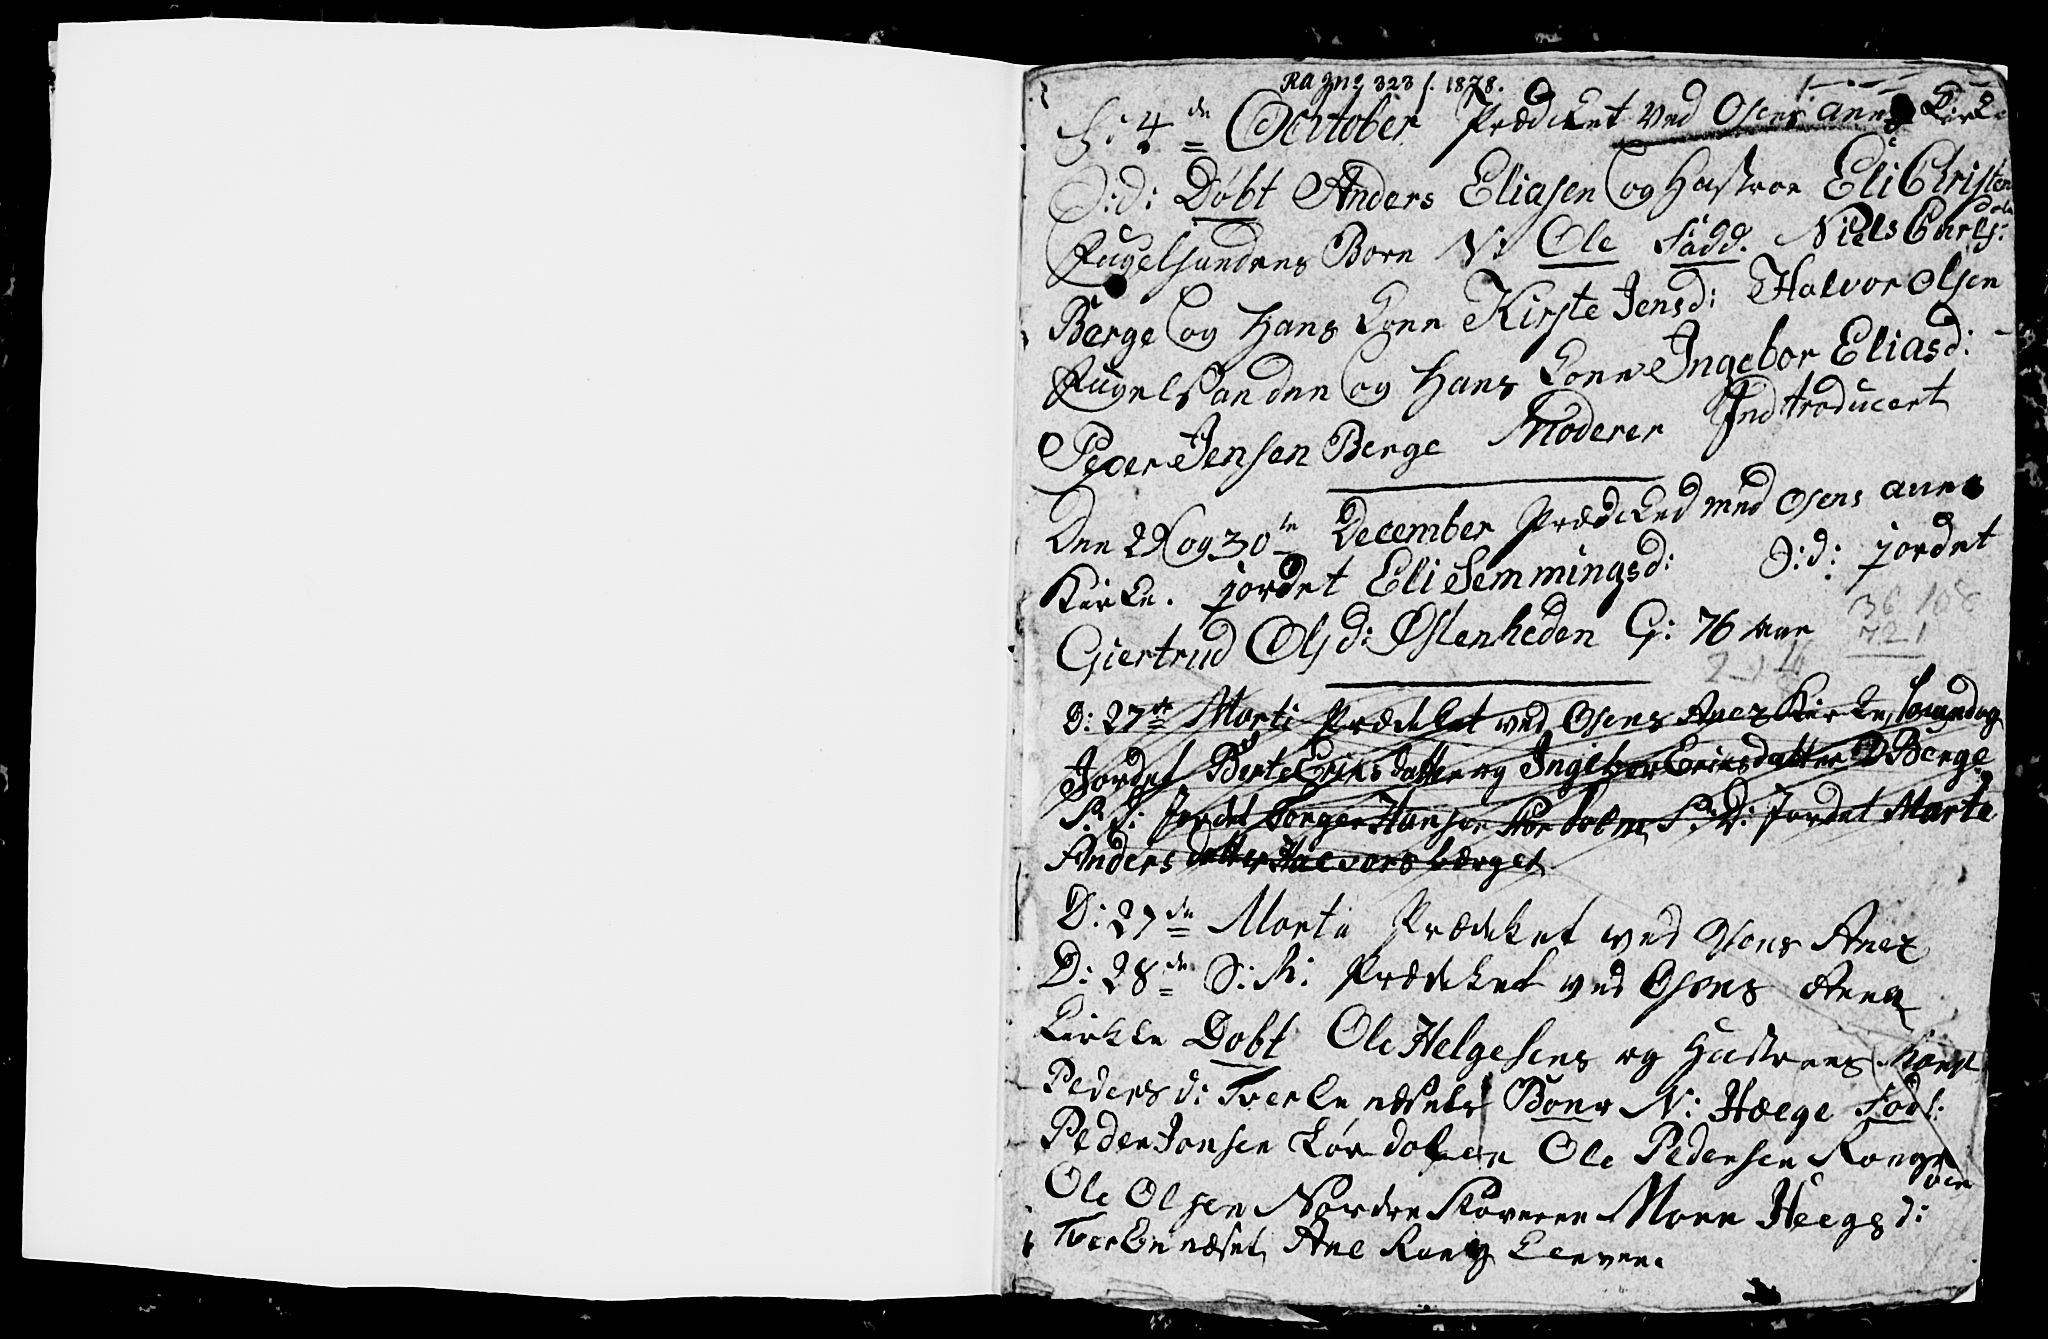 RA Jno 323 /. 1878.
4de October Prædicket ved Osens annex Kirke
D:d: Døbt Anders Eliasen og Hustroe Eli Christensdr
Fugelsundens Born N: Ole Fadd. Niels Carls:
Berge og Hans Kone Kirste Jensd: Halvor Olsen
Fugelsanden og Hans Kone Ingebor Eliasd:
Peder Jensen Berge Moderen Indtroducert
Den 29 og 30te December Prædicked med Osens annex
Kirke. jordet Eli Semmingsd: D:d: jordet
Giertrud Olsd: Østenheden G: 76 aar
36 108
721
D: 27de Marti Prædiket ved Osens Anex Kirke
Jordet Berte Erics datter og Ingebor Ericsdatter Berge
S: D: Jordet Torger Hansen S: D: Jordet Marte
Anders datter Halvorsberget
D: 27de Marti Prædiket ved Osens Anex
D: 28de S: M: Prædiket ved Osens Anex
Kirkke Døbt Ole Helgesens og Hustroes
Peders d: Tverkenesets Born N: Hæge Fad:
Peder Jonsen Ole Pedersen
Ole Olsen Nordre Moren Heegs d:
Tverkeneset Ane